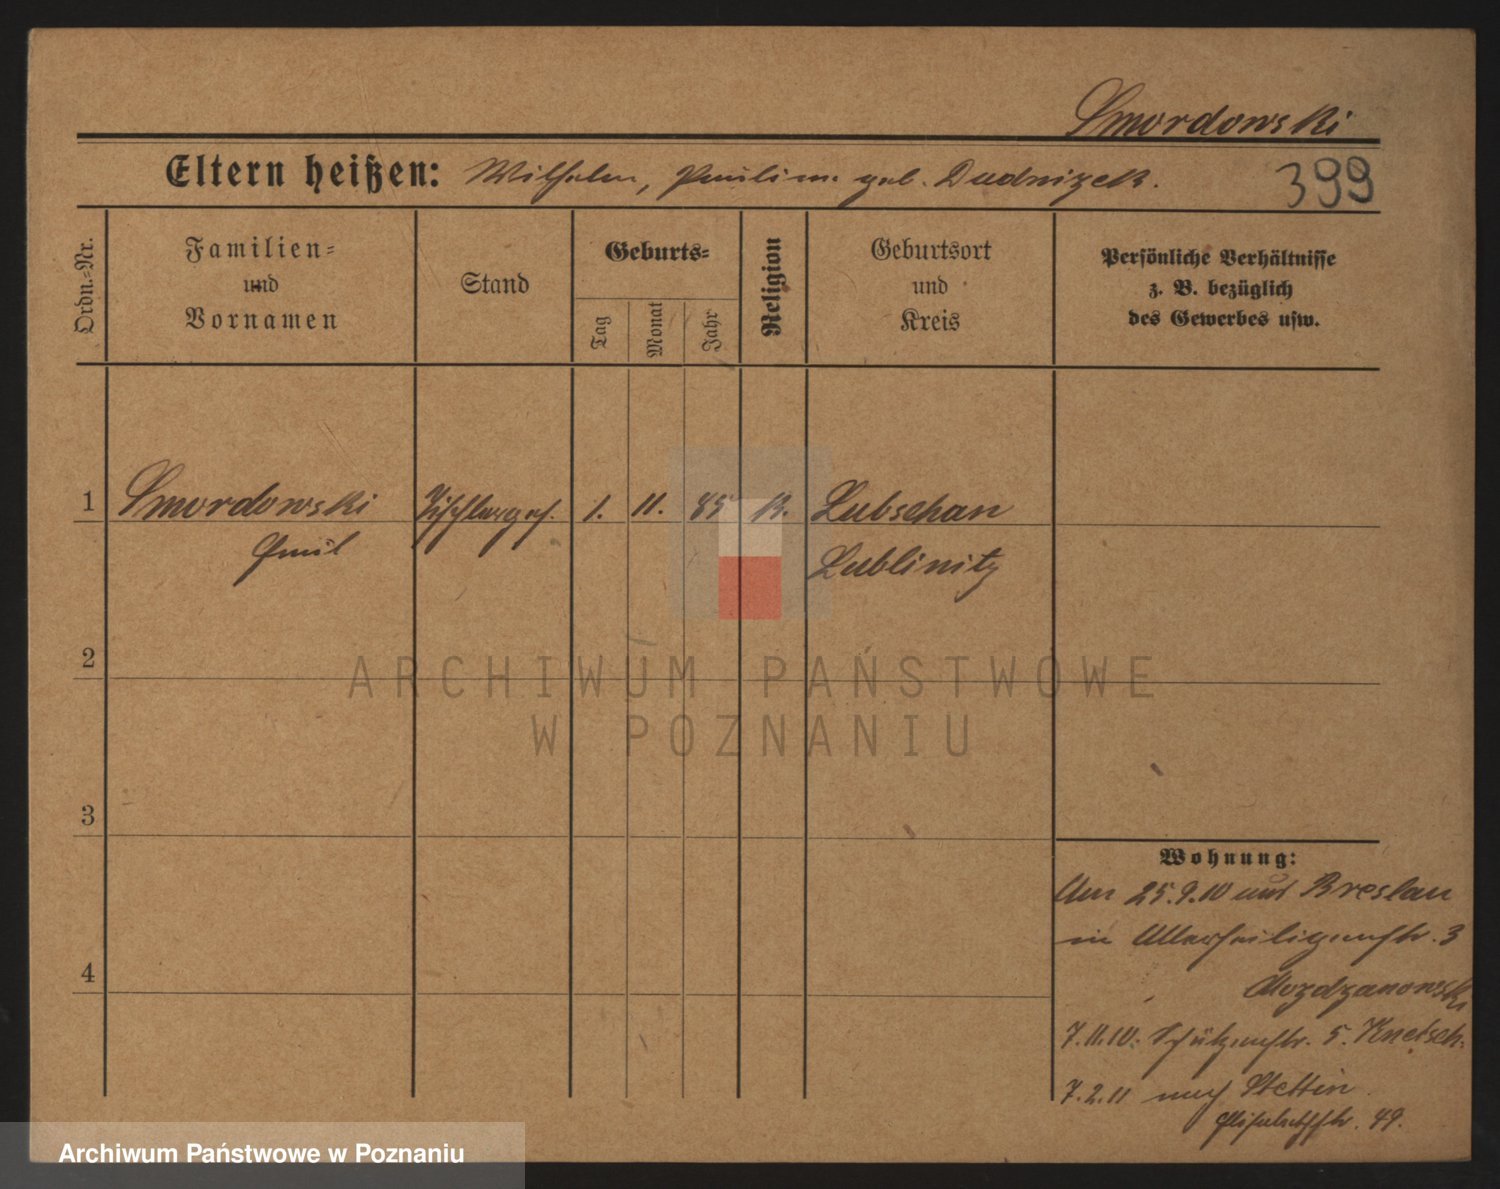 Smordowski
Eltern heißen: Wilhelm, Paulina geb. Dudnizek.
399
Ordn.-Nr.
Familien-
und
Vornamen
Stand
Geburts-
Tag
Monat
Jahr
Religion
Geburtsort
und
Kreis
Persönliche Verhältnisse
z. B. bezüglich
des Gewerbes usw.
1 Smordowski Tischlerges. 1. 11. 85 K. Lubschau
Emil Lublinitz
2
3
4
Wohnung:
Am 25.9.10 aus Breslau
in Allerheiligenstr. 3
Mozdzanowski
7.11.10. Schützenstr. 5.
7.2.11 nach Stettin
Elisabethstr. 49.
ARCHIWUM PAŃSTWOWE
W POZNANIU
Archiwum Państwowe w Poznaniu